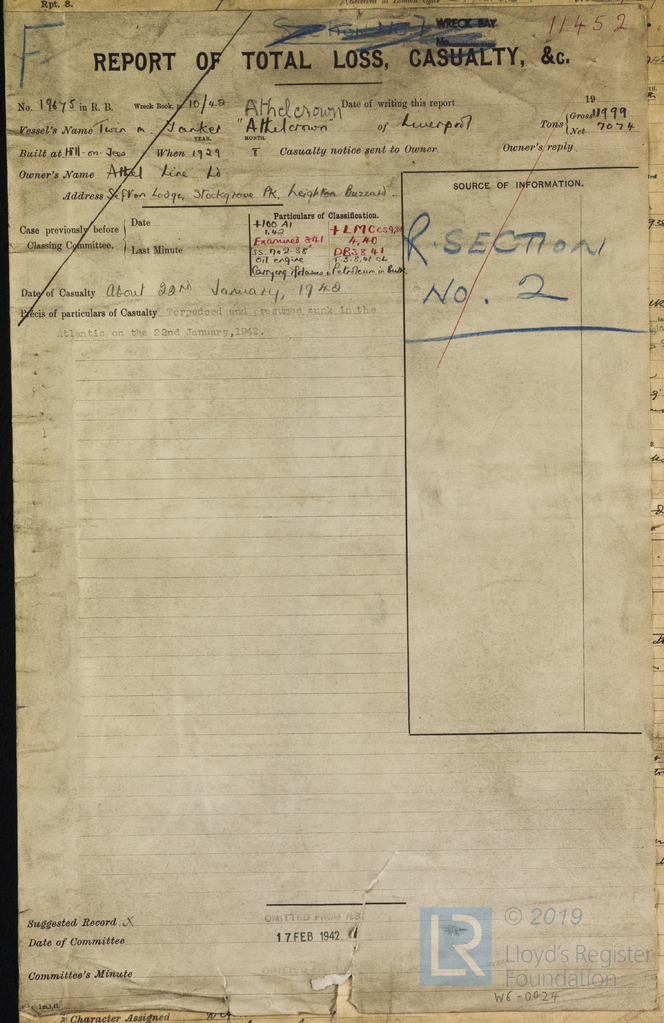 Rpt. 8.
WRECK BAY
11452
F
REPORT OF TOTAL LOSS, CASUALTY, &c.
No. 19675 in R. B. Wreck Book, p. 10/42 Athelcrown Date of writing this report 19
Vessel's Name Twin Tanker "Athelcrown" of Liverpool Tons Gross 11999 Net 7074
YEAR. MONTH.
Built at When 1929 8 Casualty notice sent to Owner Owner's reply
Owner's Name Athel Line Ld
Address Sefton Lodge, Stockgrove Pk, Leighton Buzzard.
SOURCE OF INFORMATION.
Case previously before Classing Committee. Date
Last Minute
Particulars of Classification.
+100 A1 +LMC
1,42 4,40
Examined 341 DB
Oil engine
Carrying Petroleum in Bulk
R. SECTION
NO. 2
Date of Casualty About 22nd January, 1942
Précis of particulars of Casualty Torpedoed and presumed sunk in the
Atlantic on the 22nd January, 1942.
Suggested Record X
OMITTED FROM R.B.
Date of Committee 17 FEB 1942
Committee's Minute
Character Assigned
LR © 2019
Lloyd's Register
Foundation
W6-0024